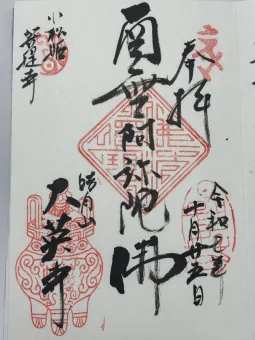 奉拝
令和元年
十月廿五日
南無阿弥陀佛
小松姫
菩提寺
皓月山
大英寺